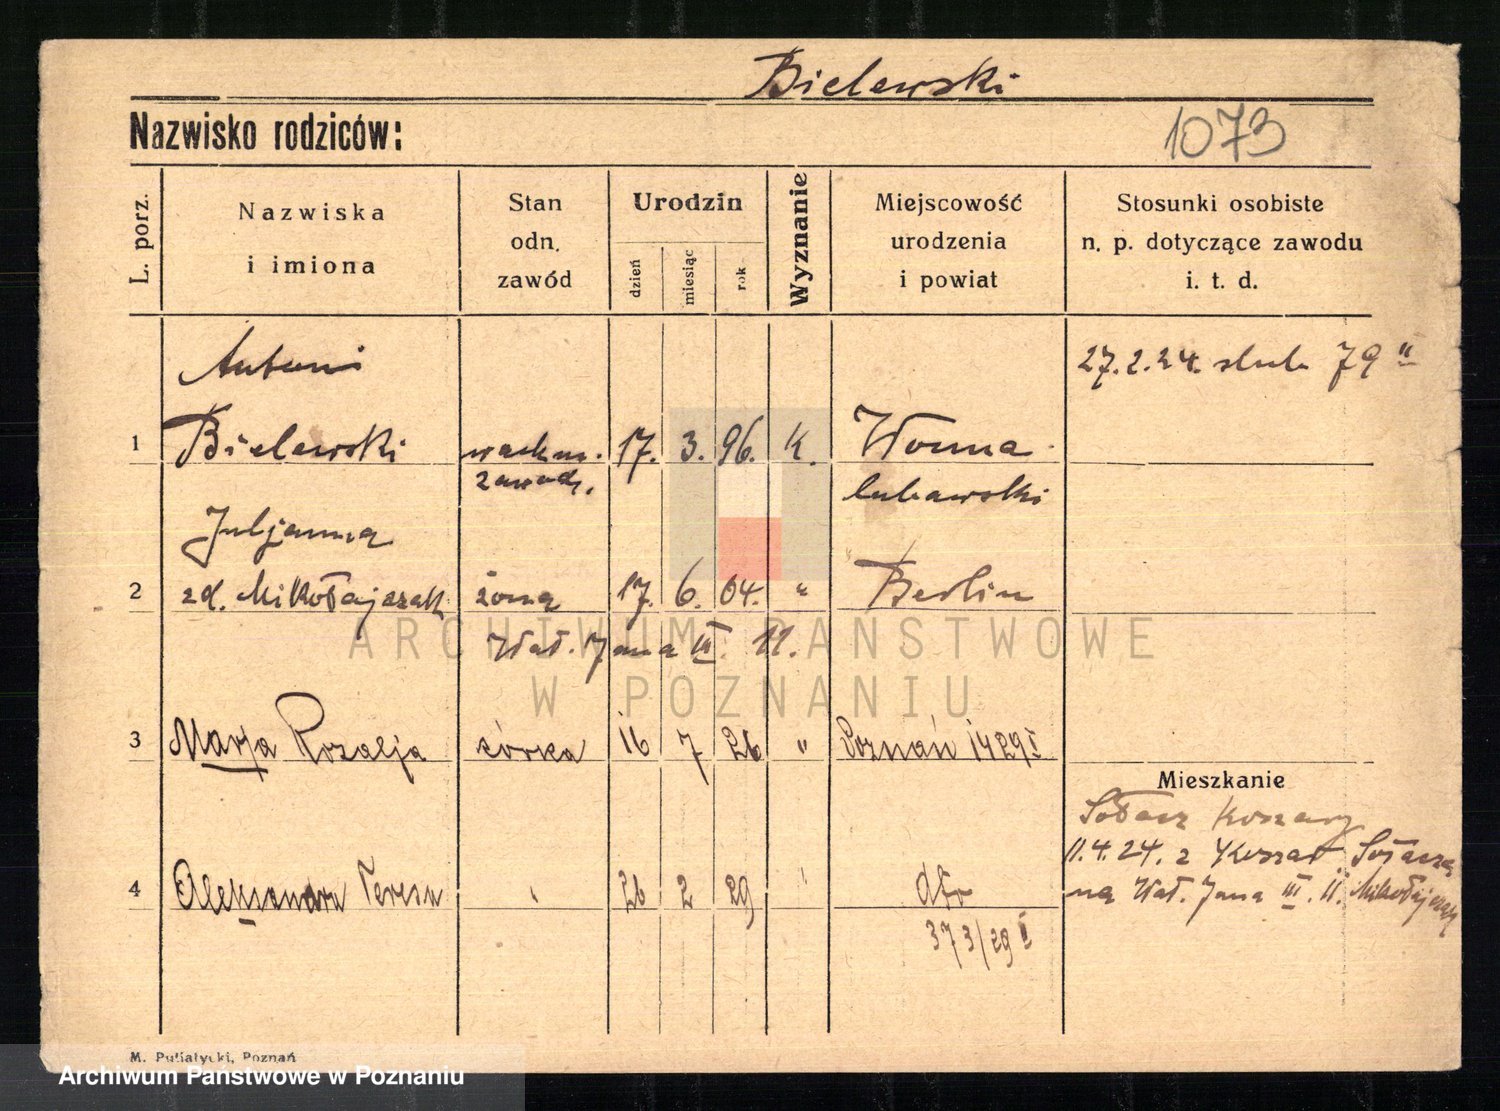 Bielewski
Nazwisko rodziców:
1073
L. porz.
Nazwiska
i imiona
Stan
odn.
zawód
Urodzin
dzień
miesiąc
rok
Wyznanie
Miejscowość
urodzenia
i powiat
Stosunki osobiste
n. p. dotyczące zawodu
i. t. d.
Antoni
27.2.24. 79 II
1 Bielewski wachm. 17. 3. 96. k.
zawod. lubawski
Juljanna
2 zd. Mikołajczak żona 17. 6. 04. " Berlin
Wał. Jana III. 11.
ARCHIWUM PAŃSTWOWE
W POZNANIU
3 Marja Rozalja córka 16 7 26 " Poznań 1429 I
Mieszkanie
Sołacz Koszary
11.4.24. z Koszar Sołacza
4 Aleksandra Teresa " 26 2 29 " dto na Wał. Jana III. 11. Mikołajczak
373/29 I
M. Putiatycki, Poznań
Archiwum Państwowe w Poznaniu